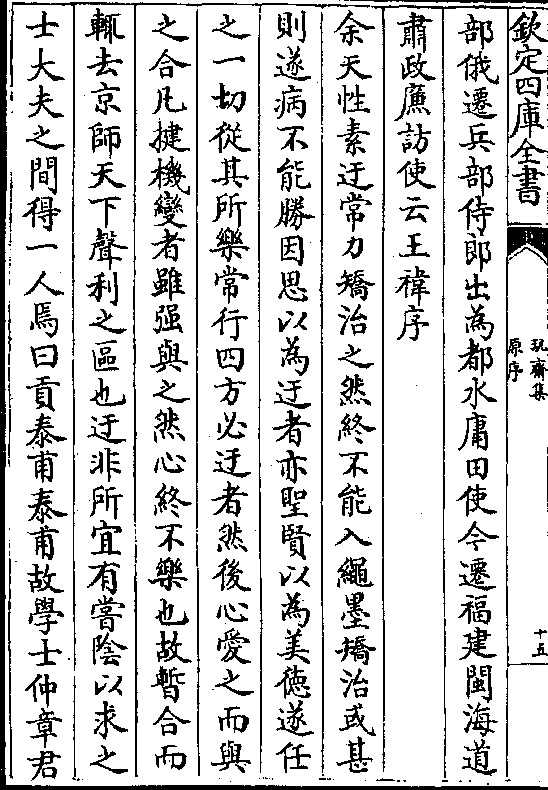 欽定四庫全書
玩齋集
原序
十五
部俄遷兵部侍郎出為都水庸田使今遷福建閩海道
肅政廉訪使云王禕序
余天性素迂常力矯治之然終不能入繩墨矯治或甚
則遂病不能勝因思以為迂者亦聖賢以為美徳遂任
之一切從其所樂常行四方必迂者然後心愛之而與
之合凡揵機變者雖强與之然心終不樂也故暫合而
輒去京師天下聲利之區也迂非所宜有嘗陰以求之
士大夫之間得一人焉曰貢泰甫泰甫故學士仲章君